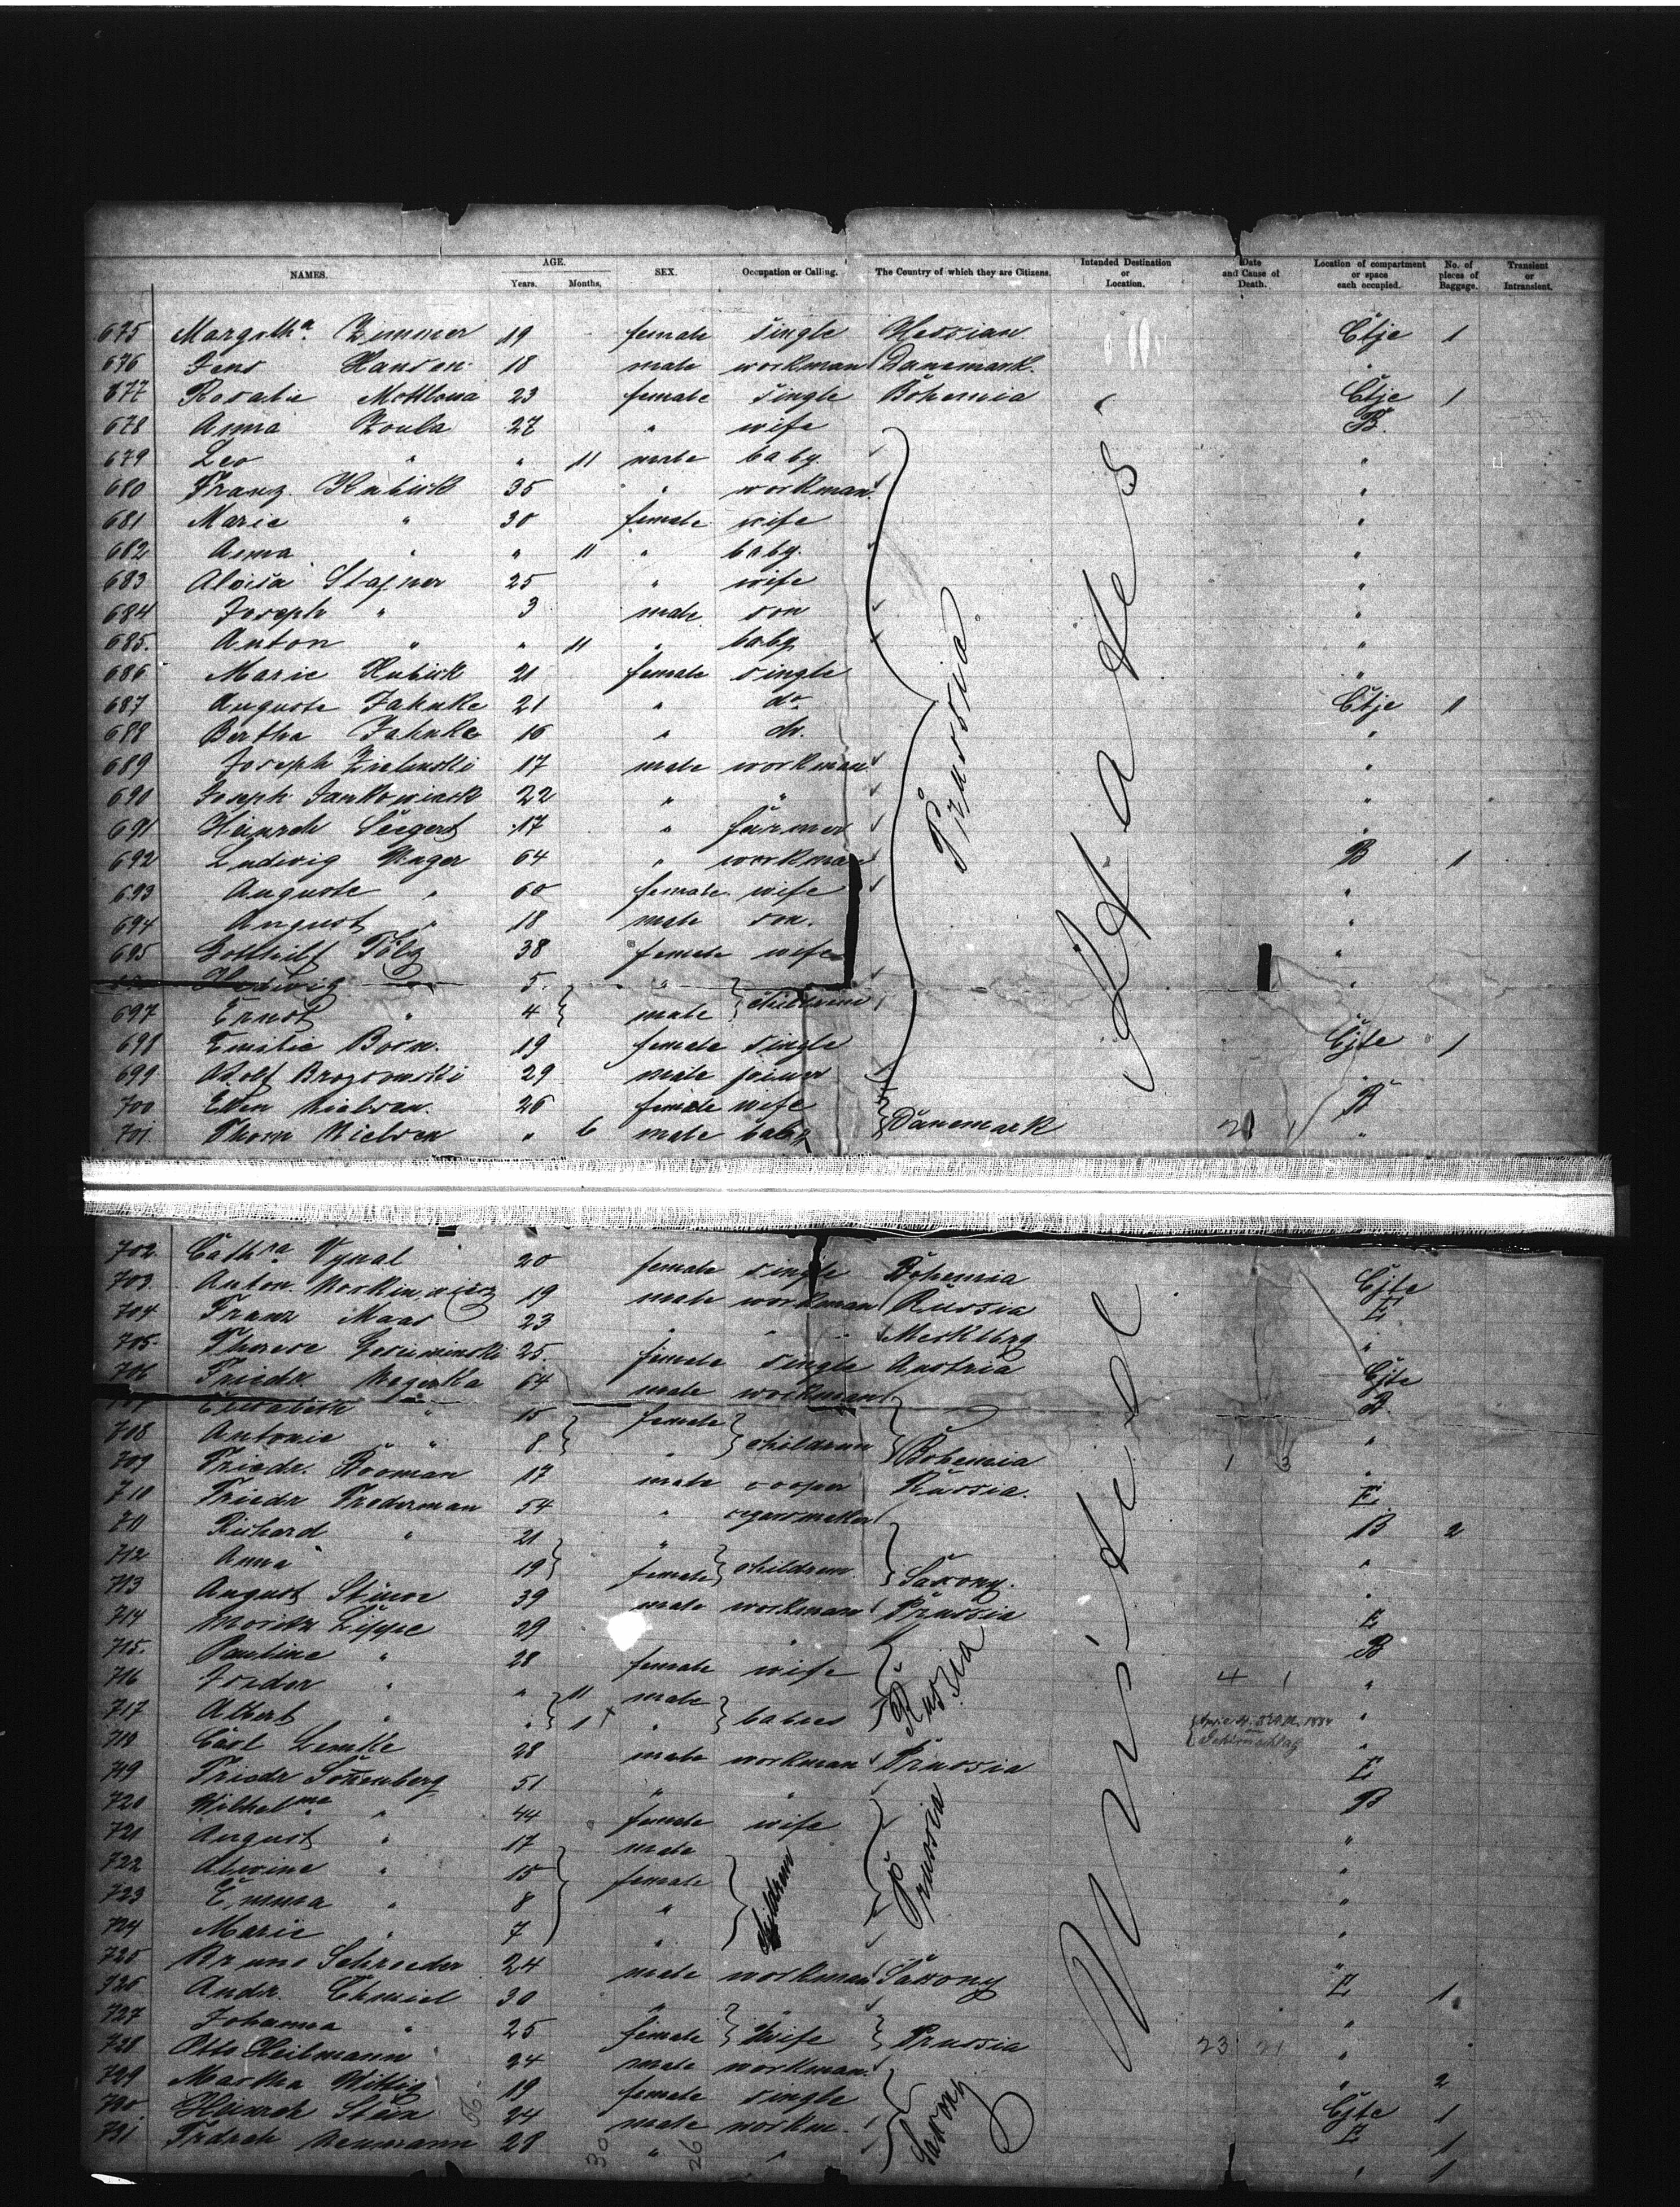 NAMES. AGE. Years. Months. SEX. Occupation or Calling. The Country of which they are Citizens. Intended Destination or Location. Date and Cause of Death. Location of compartment or space each occupied. No. of pieces of Baggage. Transient or Intransient.
675 Margtha. Zimmer 19 female single Hessian. Ctje 1
676 Jens Hansen 18 male workman Danemark. "
677 Rosalie 23 female single Bohemia Ctje 1
678 Anna Zoula 27 " wife B.
679 Leo " " 11 male baby. "
680 Franz Kubick 35 " workman "
681 Marie " 30 female wife "
682 Anna " " 11 " baby. "
683 Aloisa Stagner 25 " wife "
684 Joseph " 3 male son "
685. Anton " " 11 " baby "
686 Marie Kubick 21 female single "
687 Auguste Jahnke 21 " do. Ctje 1
688 Bertha Jahnke 16 " do. "
689 Joseph Zielinski 17 male workman "
690 Joseph Jankowiack 22 " " "
691 Heinrch Siegert 17 " farmer "
692 Ludwig Unger 64 " workman B 1
693 Auguste " 60 female wife "
694 August " 18 male son. "
695 Gottlieb Tölz 38 female wife "
Hedwig 5. " "
697 Ernst " 4 male children
698 Emilie Born. 19 female single Cjte 1
699 Adolf 29 male joiner "
700 Ellen Nielsen. 26 female wife B
701. Thom Nielsen " 6 male baby Danemark 2 1 "
Prussia
States
702. Cathra. Vynal 20 female single Bohemia Cjte
703. Anton. 19 male workman Russia E
704 Franz Maas 23 " " Mecklbrg "
705. Therese 25. female single Austria Cjte
706 Friedr. 64 male workman B
Elisabeth " 15 female "
708 Antonie " 8 " children Bohemia 1 3 "
709 Friedr. Booman 17 male cooper Russia. E
710 Friedr Froderman 54 " cigarrmaker B 2
711 Richard " 21 " "
712 Anna " 19 female children Saxony. "
713 August 39 male workman Prussia E
714 Moritz Lippe 29 " B
715. Pauline " 28 female wife 4 1 "
716 " " 11 male "
717 Albert " " 1 + " babies Russia 1884
718 Carl Lemke 28 male workman Prussia E
719 Friedr Sonnenberg 51 " " B
720 Wilhelme " 44 female wife "
721 August " 17 male "
722 Alwine " 15 female "
723 Emma " 8 " "
724 Marie " 7 " children Prussia "
725 Bruno Schroeder 24 male workman Saxony E 1
726 Andr. Chmiel 30 " "
727 Johanna " 25 female wife Prussia 23 21 "
728 Otto Heilmann 24 male workman " 2
729 Martha Wittig 19 female single Cjte 1
730 Heinrch Stein 24 male workm. E 1
731 Frdrch Neumann 28 " " Saxony " 1
United
56. 30 26